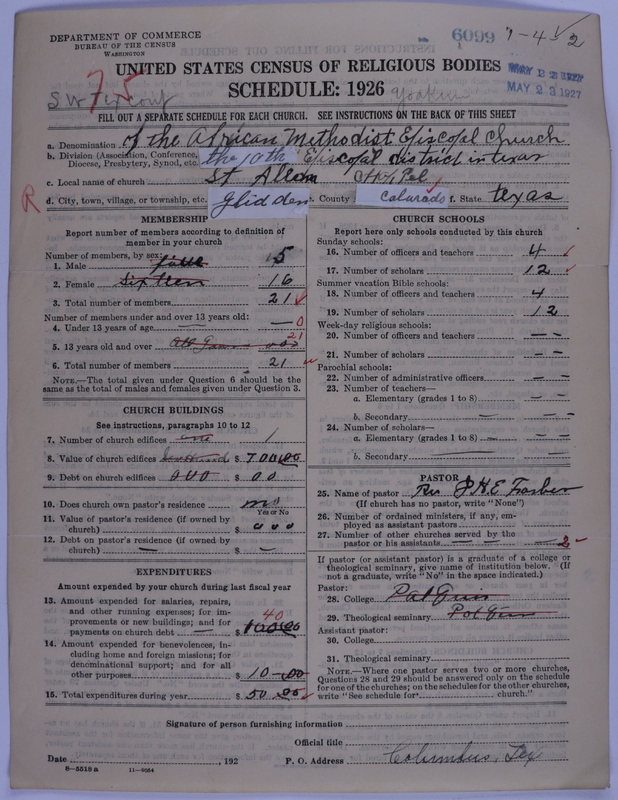 DEPARTMENT OF COMMERCE
BUREAU OF THE CENSUS
WASHINGTON
6099
7-4 1/2
UNITED STATES CENSUS OF RELIGIOUS BODIES
MAY 23 1927
SCHEDULE: 1926
75
S W Tex Conf
Yoakum
FILL OUT A SEPARATE SCHEDULE FOR EACH CHURCH. SEE INSTRUCTIONS ON THE BACK OF THIS SHEET
a. Denomination of the African Methodist Episcopal Church
b. Division (Association, Conference, the 10th Episcopal District in texas
Diocese, Presbytery, Synod, etc.
c. Local name of church St
R
d. City, town, village, or township, etc. Glidden e. County Colorado f. State texas
MEMBERSHIP
Report number of members according to definition of
member in your church
Number of members, by sex:
1. Male 5
2. Female Sixteen 16
3. Total number of members 21
Number of members under and over 13 years old:
4. Under 13 years of age — 0
5. 13 years old and over 21
6. Total number of members 21
NOTE.—The total given under Question 6 should be the
same as the total of males and females given under Question 3.
CHURCH BUILDINGS
See instructions, paragraphs 10 to 12
7. Number of church edifices one 1
8. Value of church edifices $ 700.00
9. Debt on church edifices 000 $ 00
10. Does church own pastor's residence no
Yes or No
11. Value of pastor's residence (if owned by
church) $ 000
12. Debt on pastor's residence (if owned by
church) — $ —
EXPENDITURES
Amount expended by your church during last fiscal year
13. Amount expended for salaries, repairs,
and other running expenses; for im-
provements or new buildings; and for 40
payments on church debt — $
14. Amount expended for benevolences, in-
cluding home and foreign missions; for
denominational support; and for all
other purposes $ 10-00
15. Total expenditures during year $ 50.00
CHURCH SCHOOLS
Report here only schools conducted by this church
Sunday schools:
16. Number of officers and teachers 4
17. Number of scholars 12
Summer vacation Bible schools:
18. Number of officers and teachers 4
19. Number of scholars 12
Week-day religious schools:
20. Number of officers and teachers — —
21. Number of scholars — —
Parochial schools:
22. Number of administrative officers — —
23. Number of teachers—
a. Elementary (grades 1 to 8) — —
b. Secondary — — —
24. Number of scholars—
a. Elementary (grades 1 to 8) — —
b. Secondary — —
PASTOR
25. Name of pastor Rev P.H.E.
(If church has no pastor, write "None")
26. Number of ordained ministers, if any, em-
ployed as assistant pastors
27. Number of other churches served by the
pastor or his assistants — — 2
If pastor (or assistant pastor) is a graduate of a college or
theological seminary, give name of institution below. (If
not a graduate, write "No" in the space indicated.)
Pastor:
28. College
29. Theological seminary
Assistant pastor:
30. College
31. Theological seminary
NOTE.—Where one pastor serves two or more churches,
Questions 28 and 29 should be answered only on the schedule
for one of the churches; on the schedules for the other churches,
write "See schedule for church."
Signature of person furnishing information
Official title
Date , 192 P. O. Address Columbus, Tex
8-5519 a 11-9064